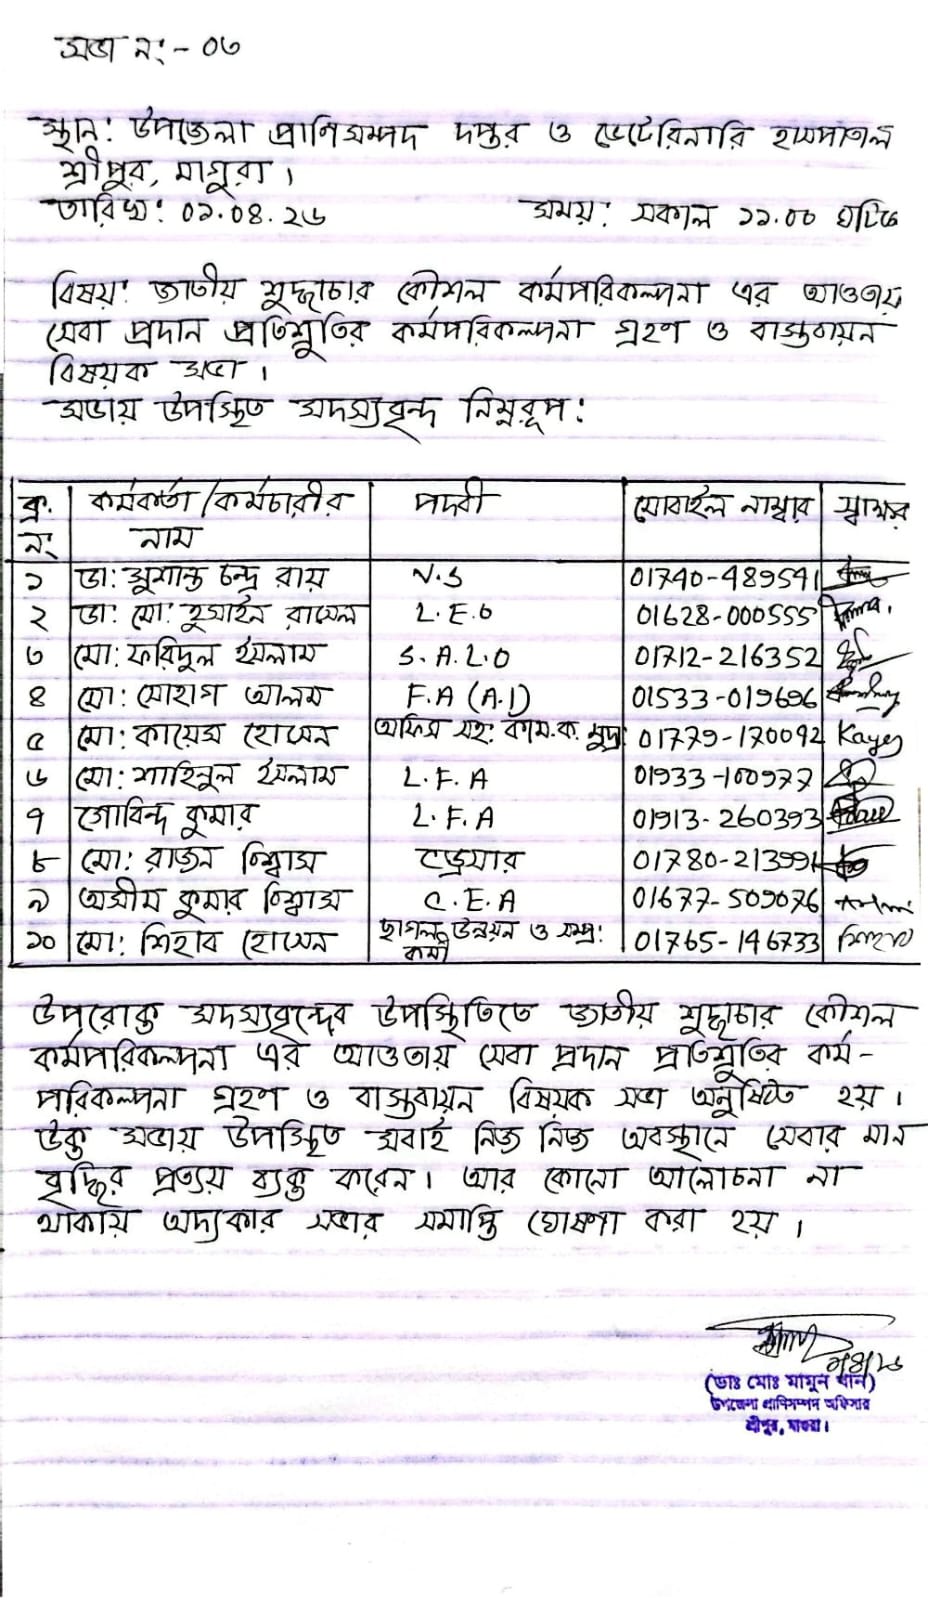 সভা নং - ০৩
স্থান: উপজেলা প্রাণিসম্পদ দপ্তর ও ভেটেরিনারি হাসপাতাল
শ্রীপুর, মাগুরা।
তারিখ: ০১.০৪.২৬ সময়: সকাল ১১.০০ ঘটিকা
বিষয়: জাতীয় শুদ্ধাচার কৌশল কর্মপরিকল্পনা এর আওতায়
সেবা প্রদান প্রতিশ্রুতির কর্মপরিকল্পনা গ্রহণ ও বাস্তবায়ন
বিষয়ক সভা।
সভায় উপস্থিত সদস্যবৃন্দ নিম্নরূপ:
ক্র. নং কর্মকর্তা/কর্মচারীর নাম পদবী মোবাইল নাম্বার স্বাক্ষর
১ ডা: সুশান্ত চন্দ্র রায় V.S 01740-489541
২ ডা: মো: হুসাইন রাসেল L.E.O 01628-000555
৩ মো: ফরিদুল ইসলাম S.A.L.O 01712-216352
৪ মো: সোহাগ আলম F.A (A.I) 01533-019696
৫ মো: কায়েস হোসেন অফিস সহ: কাম.ক. মুদ্রা: 01779-170092 Kayes
৬ মো: শাহিনুল ইসলাম L.F.A 01933-100977
৭ গোবিন্দ কুমার L.F.A 01913-260393
৮ মো: রাজন বিশ্বাস ড্রেসার 01780-213991
৯ অসীম কুমার বিশ্বাস C.E.A 01677-509076
১০ মো: শিহাব হোসেন ছাগল উন্নয়ন ও সম্প্র: কর্মী 01765-146733 শিহাব
উপরোক্ত সদস্যবৃন্দের উপস্থিতিতে জাতীয় শুদ্ধাচার কৌশল
কর্মপরিকল্পনা এর আওতায় সেবা প্রদান প্রতিশ্রুতির কর্ম-
পরিকল্পনা গ্রহণ ও বাস্তবায়ন বিষয়ক সভা অনুষ্ঠিত হয়।
উক্ত সভায় উপস্থিত সবাই নিজ নিজ অবস্থানে সেবার মান
বৃদ্ধির প্রত্যয় ব্যক্ত করেন। আর কোনো আলোচনা না
থাকায় অদ্যকার সভার সমাপ্তি ঘোষণা করা হয়।
(ডাঃ মোঃ মামুন খান)
উপজেলা প্রাণিসম্পদ অফিসার
শ্রীপুর, মাগুরা।